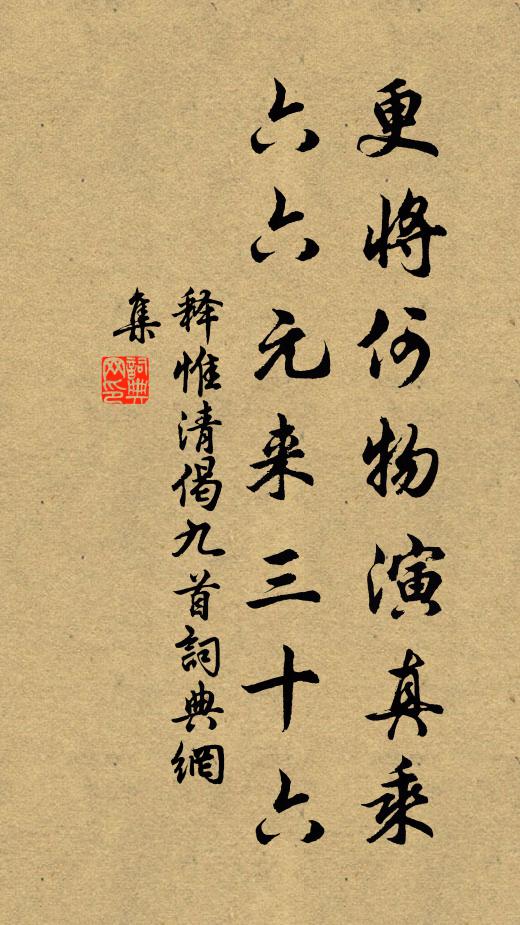 更將何物演真乘
六六元来三十六
释惟清偈九首詞典網
集
詞典
网印